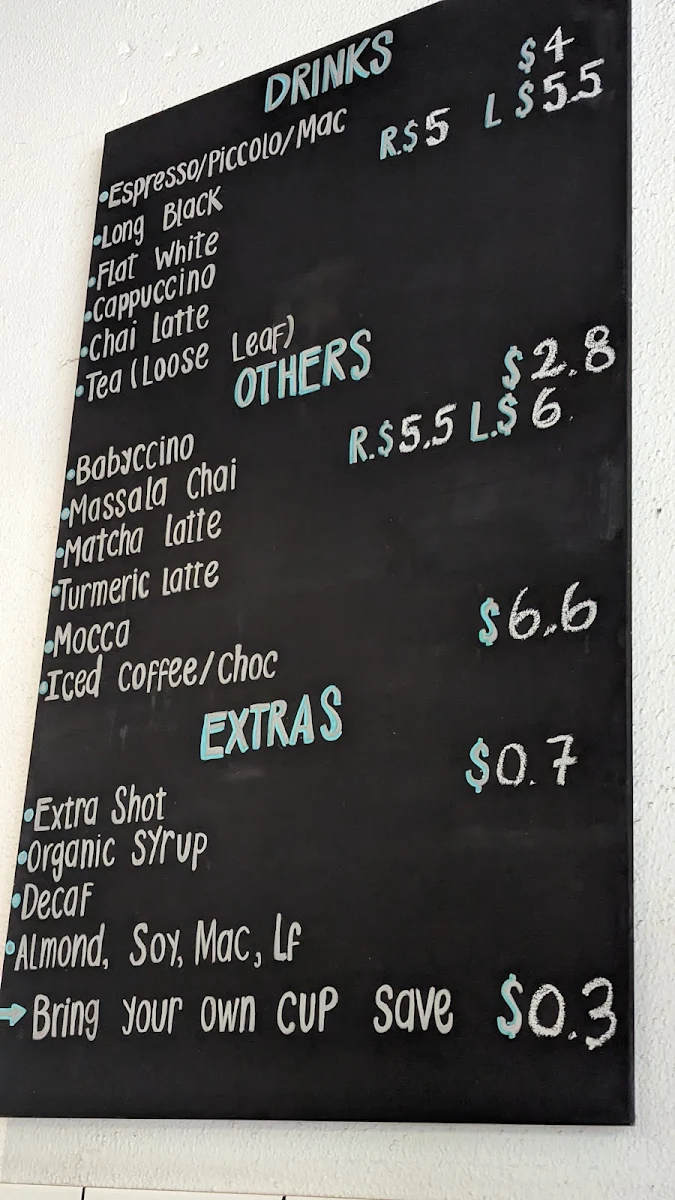 DRINKS
•Espresso/Piccolo/Mac $4
•Long Black R.$5 L $5.5
•Flat White
•Cappuccino
•Chai Latte
•Tea (Loose Leaf)
OTHERS
•Babyccino $2.8
•Massala Chai R.$5.5 L.$6
•Matcha Latte
•Turmeric Latte
•Mocca
•Iced Coffee/Choc $6.6
EXTRAS
•Extra Shot $0.7
•Organic Syrup
•Decaf
•Almond, Soy, Mac, Lf
→Bring your own cup save $0.3